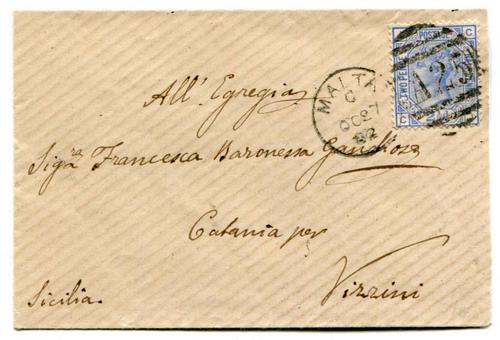 C POSTAGE C
TWO PENCE
A25
MALTA
C
OC 27
82
All' Egregia
Sig.ra Francesca Baronessa
Catania per
Vizzini
Sicilia.